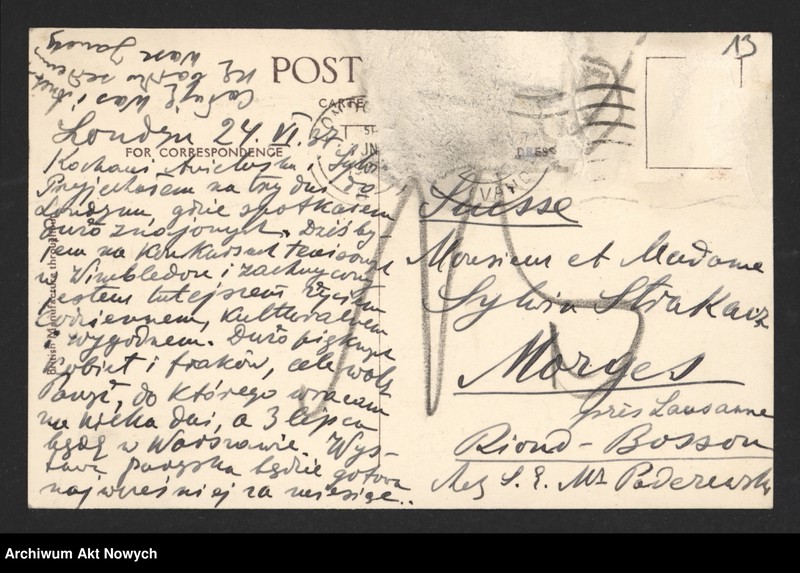 13
POST
CARTE
FOR CORRESPONDENCE
DRESS
British Manufacture throughout
Londyn 24. VI. 37
Kochani
Przyjechałem na trzy dni do
Londynu, gdzie spotkałem
dużo znajomych. Dziś by-
łem na konkursach tenisowych
w Wimbledon i zachwycony
jestem tutejszem życiem
codziennem, kulturalnem
i wygodnem. Dużo pięknych
kobiet i fraków,
Paryż, do którego wracam
na kilka dni, a 3 lipca
będę w Warszawie. Wys-
tawa paryska będzie gotowa
najwcześniej za miesiąc..
Całuję Was i
Wasz
Suisse
Monsieur et Madame
Sylwin Strakacz
Morges
près Lausanne
Riond-Bosson
chez S. E. Mr Paderewski
Archiwum Akt Nowych